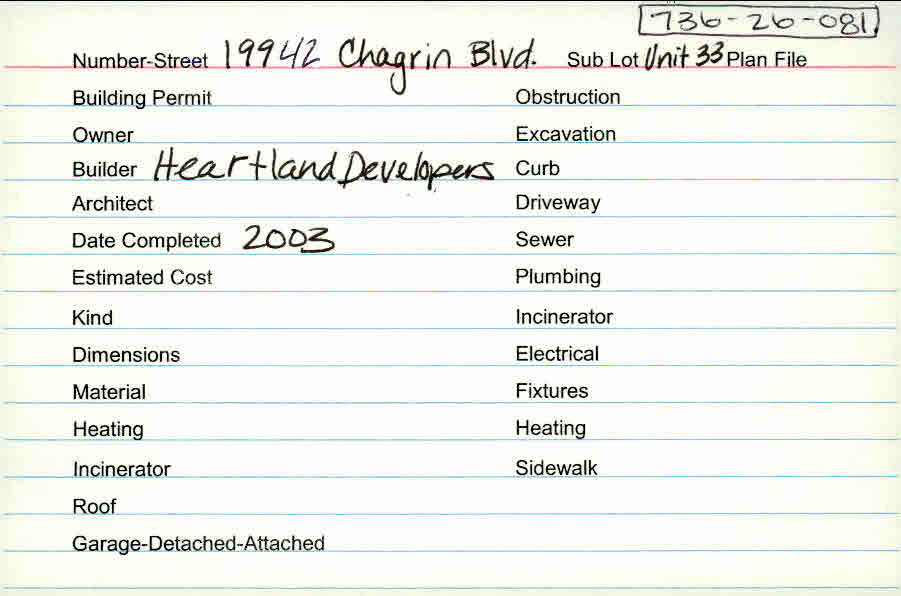 736-26-081
Number-Street 19942 Chagrin Blvd. Sub Lot Unit 33 Plan File
Building Permit Obstruction
Owner Excavation
Builder Heartland Developers Curb
Architect Driveway
Date Completed 2003 Sewer
Estimated Cost Plumbing
Kind Incinerator
Dimensions Electrical
Material Fixtures
Heating Heating
Incinerator Sidewalk
Roof
Garage-Detached-Attached